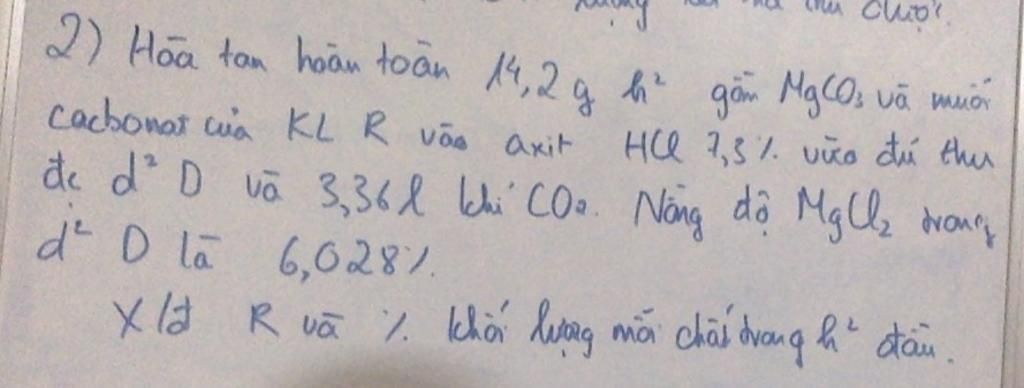 lượng chất thu được.
2) Hòa tan hoàn toàn 14,2g h² gồm MgCO₃ và muối
cacbonat của KL R vào axit HCl 7,3% vừa đủ thu
đc d² D và 3,36l khí CO₂. Nồng độ MgCl₂ trong
d² D là 6,028%.
X/đ R và % khối lượng mỗi chất trong h² đầu.